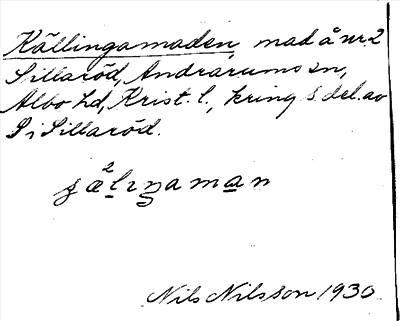 Källingamaden, mad å nr 2
Sillaröd, Andrarums sn,
Albo hd, Krist. l., kring s. del. av
S i Sillaröd.
2
Nils Nilsson 1930.